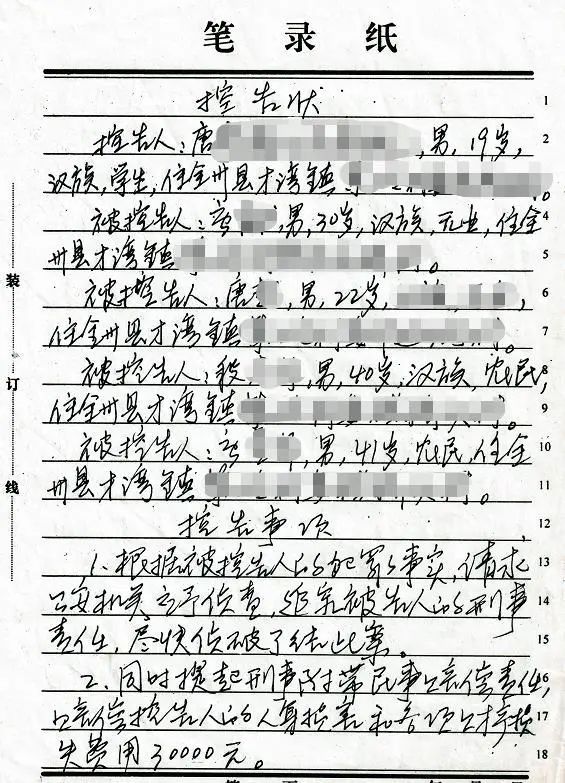 笔录纸
控告状 1
控告人:唐 ,男,19岁, 2
汉族,学生,住全州县才湾镇 。
被控告人: ,男,30岁,汉族,无业,住全 4
州县才湾镇 。 5
被控告人:唐 ,男,22岁, , 6
住全州县才湾镇 。 7
被控告人: ,男,40岁,汉族,农民, 8
住全州县才湾镇 。 9
被控告人: ,男,41岁,农民,住全 10
州县才湾镇 。 11
控告事项 12
1、根据被控告人的犯罪事实,请求 13
公安机关立予侦查,追究被告人的刑事 14
责任,尽快侦破了结此案。 15
2、同时提起刑事附带民事赔偿责任, 16
赔偿控告人的人身损害和各项经济损 17
失费用30000元。 18
装订线